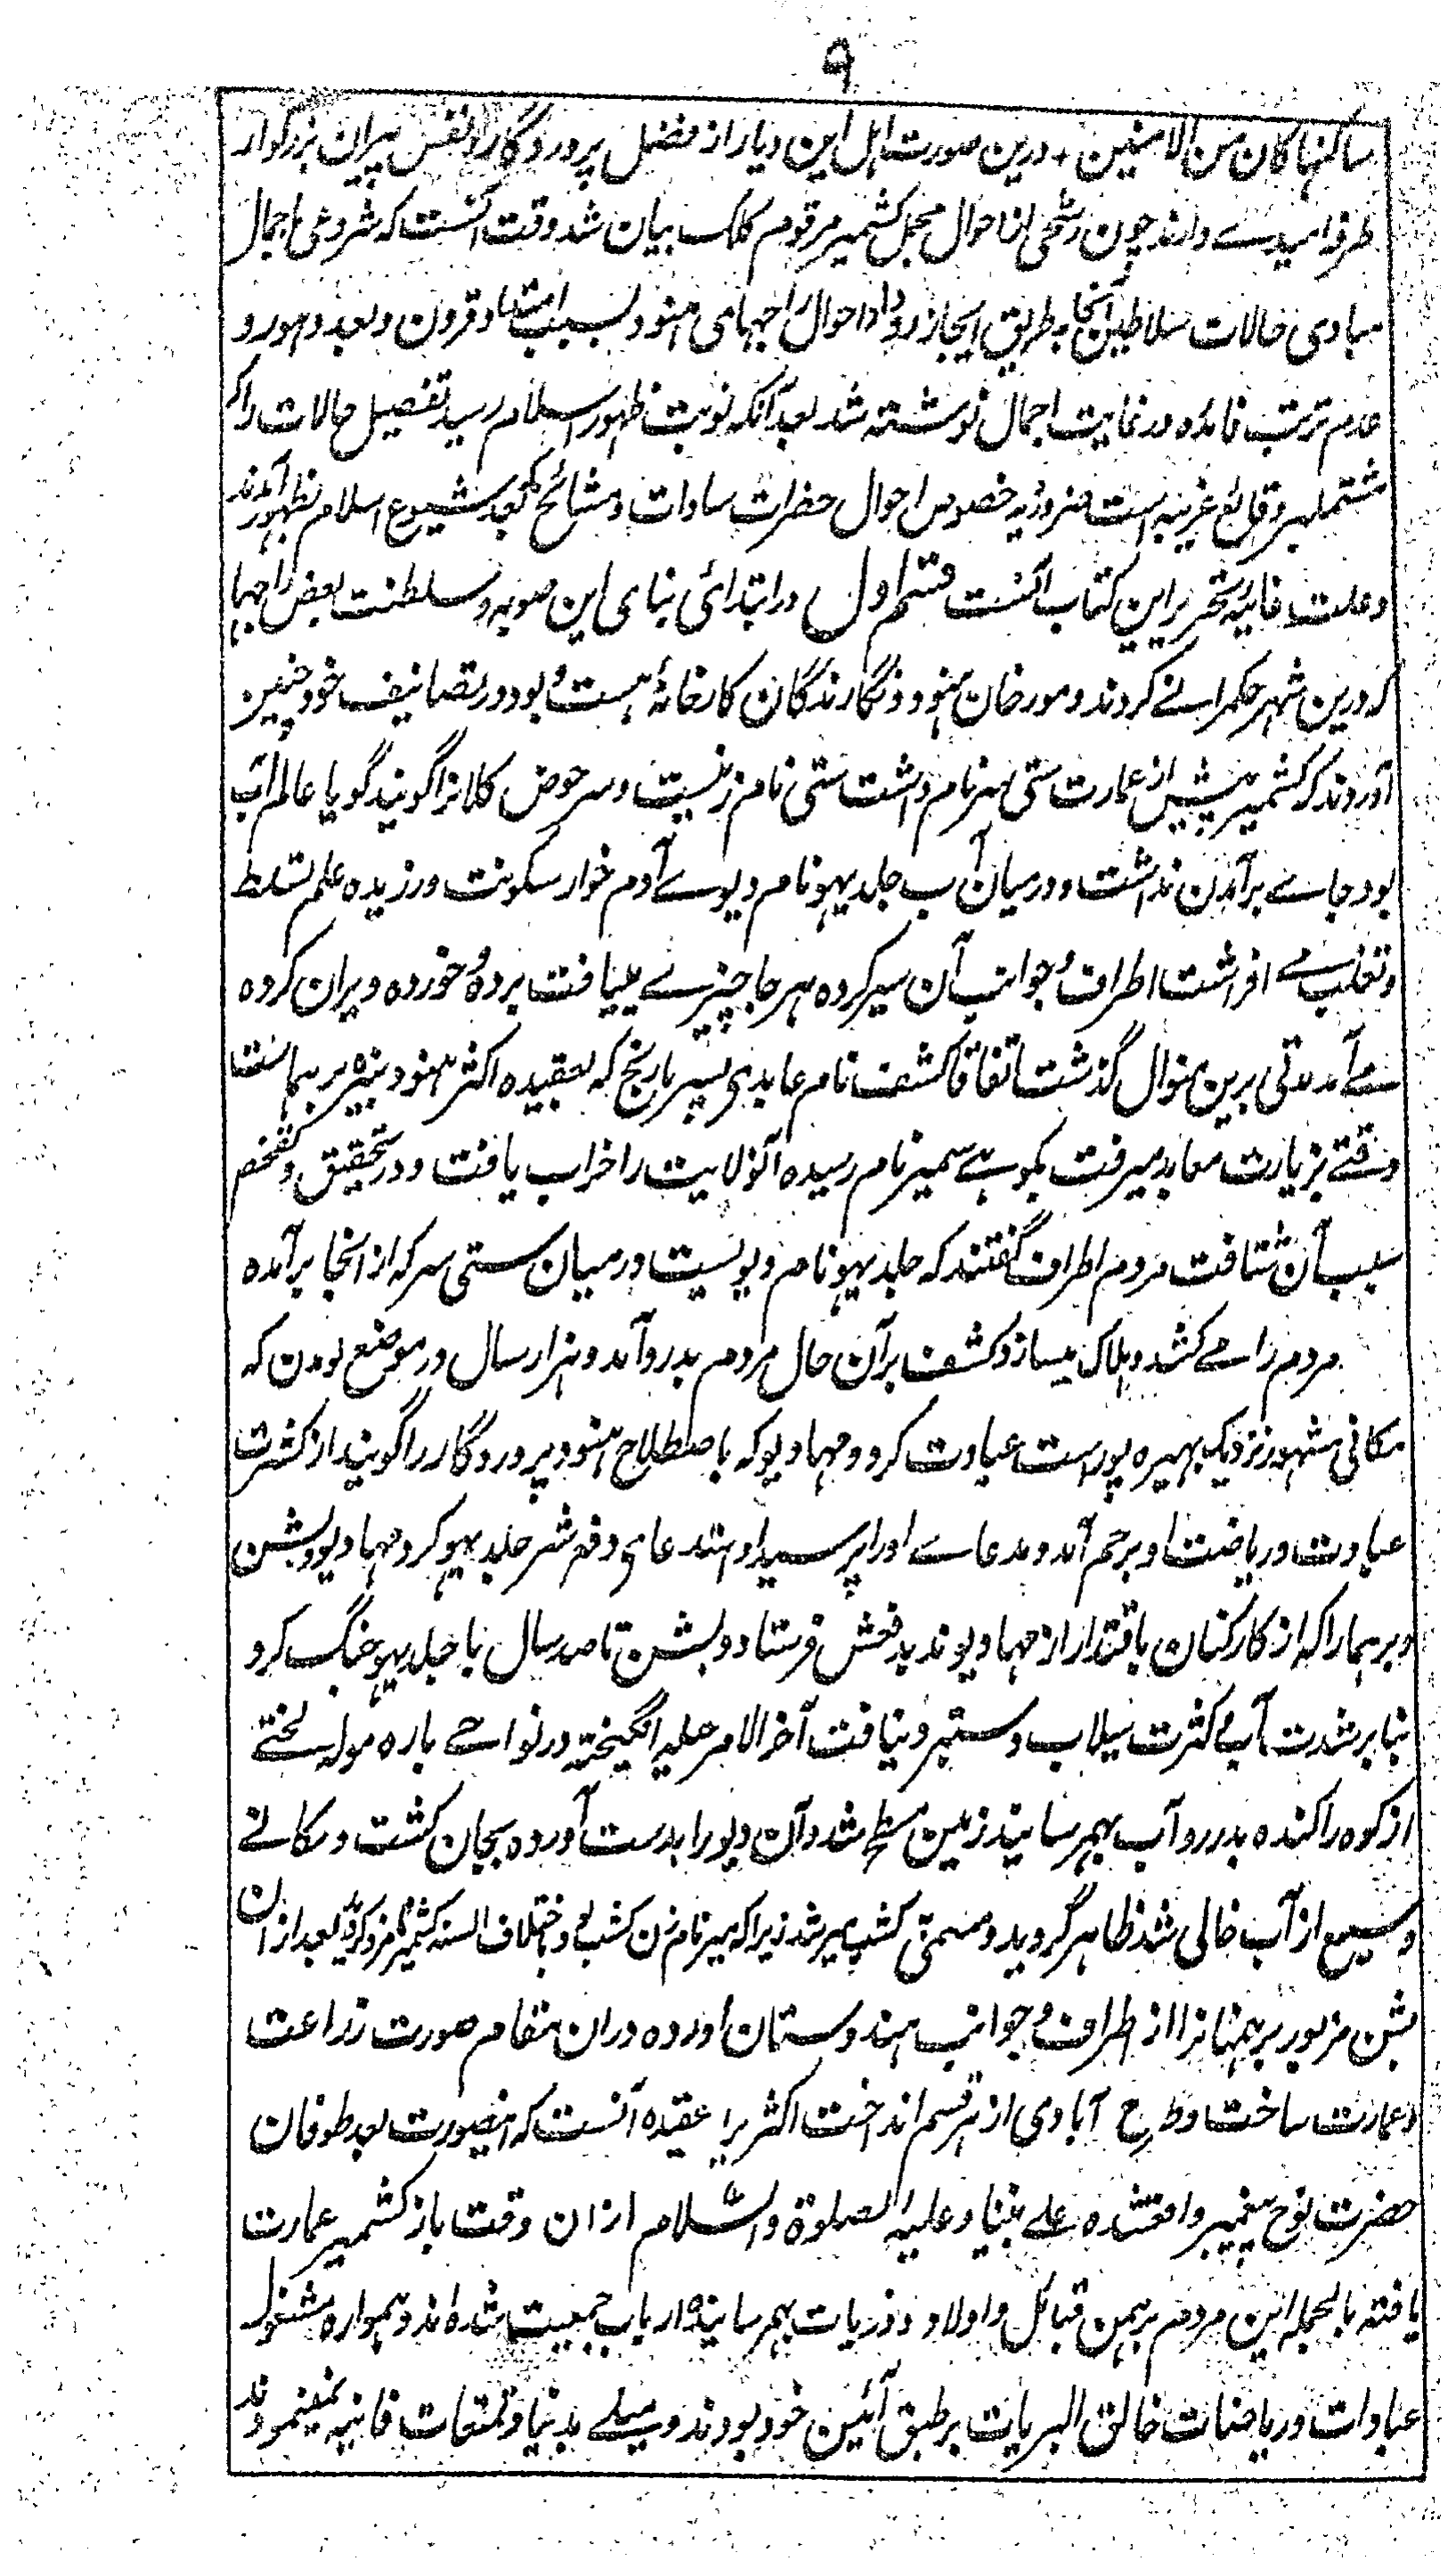 ۹
ساکنہا کان من الامنین + درین صورت اہل این دیار از فضل پروردگار و نفس پیران بزرگوار
طرفہ امیدے دارند چون رشحی از احوال مجمل کشمیر مرقوم کلک بیان شد وقت آنست کہ شروعی باجمال
مبادی حالات سلاطین آنجا بطریق ایجاز رود اما احوال راجہای ہنود بسبب امتداد قرون و بعد دہور و
عدم ترتب فائدہ در غایت اجمال نوشتہ شد بعد آنکہ نوبت ظہور اسلام رسید تفصیل حالات را کہ
مشتملبر وقائع غریبہ است ضرور بہ خصوص احوال حضرات سادات و مشائخ کہ بعد شیوع اسلام بظہور آمدند
و علت غائیہ تحریر این کتاب آنست قسم اول در ابتدائی بنای این صوبہ و سلطنت بعض راجہا
کہ درین شہر حکمرانے کردند و مورخان ہنود و نگارندگان کارخانۂ ہست و بود در تصانیف خود چنین
آوردند کہ کشمیر پیش از عمارت ستی سر نام داشت ستی نام زنیست و سر حوض کلانرا گویند گویا عالم آب
بود جاے برآمدن نداشت و درمیان آب جلدیہو نام دیوے آدم خوار سکونت ورزیدہ علم تسلط
و تغلب مے افراشت اطراف و جوانب آن سیر کردہ ہر جا چیزے مییافت بردہ و خوردہ ویران کردہ
مے آمد مدتی برین منوال گذشت اتفاقا کشف نام عابدی پسر بارنج کہ بعقیدہ اکثر ہنود نبیرہ برہماست
وقتے بزیارت معابد میرفت بکوہے سمیر نام رسیدہ آنولایت را خراب یافت و در تحقیق و تفحص
سبب آن شتافت مردم اطراف گفتند کہ جلدیہو نام دیویست درمیان ستی سر کہ از انجا برآمدہ
مردم را مے کشد و ہلاک میسازد کشف بر آن حال مردم بدرد آمد و ہزار سال در موضع نوبدن کہ
مکانی مشہور نزدیک بہیرہ پور است عبادت کرد و مہادیو کہ باصطلاح ہنود پروردگار را گویند از کثرت
عبادت و ریاضت او برحم آمد و مدعاے او را پرسید او استدعای دفع شر جلدیہو کرد مہادیو بشن
و برہما را کہ از کارکنان باقتدار از مہادیو اند بدفعش فرستاد و بشن تا صد سال با جلدیہو جنگ کرد
بنابر شدت آب و کثرت سیلاب دستبرد نیافت آخر الامر حیلہ انگیختہ در نواحے بارہ مولہ لختے
از کوہ را کندہ بدررو آب بہم رسانید زمین مسطح شد و آن دیو را بدست آوردہ بیجان کشت و مکانے
وسیع از آب خالی شد ظاہر گردید و مسمی کشپ میر شد زیرا کہ میر نام زن کشپ بود باختلاف السنہ کشمیر بعد از ان
بشن مزبور برہمنانرا از اطراف و جوانب ہندوستان آوردہ دران مقام صورت زراعت
و عمارت ساخت و طرح آبادی از ہر قسم انداخت اکثر برا عقیدہ آنست کہ اینصورت بعد طوفان
حضرت نوح پیغمبر واقعشدہ علے نبینا و علیہ الصلوۃ والسلام از ان وقت باز کشمیر عمارت
یافتہ بالجملہ این مردم برہمن قبائل و اولاد و ذریات بہم رسانیدہ ارباب جمعیت شدہ اند و ہموارہ مشغول
عبادات و ریاضات خالق البریات بر طبق آئین خود بودند و میلے بدنیا و تمتعات فانیہ نمینمودند